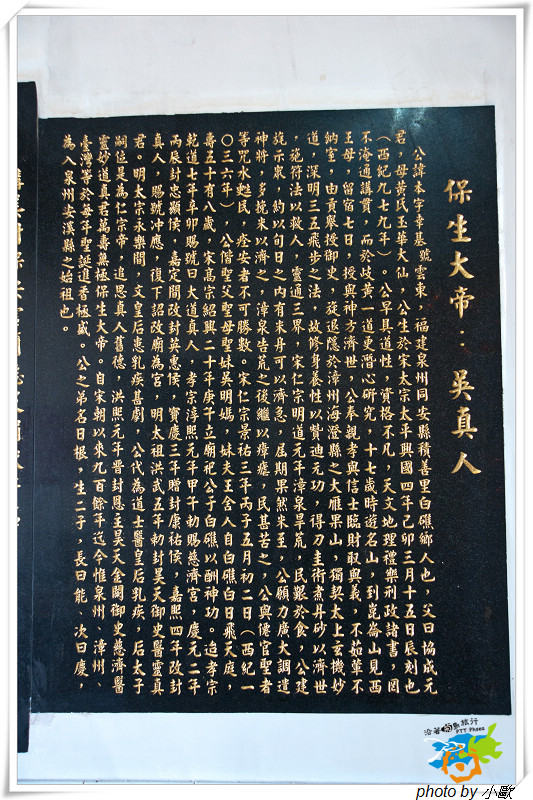 保生大帝：吳真人
公諱本字華基號雲東，福建泉州同安縣積善里白礁鄉人也，父曰協成元
君，母黃氏玉華大仙，公生於宋太宗太平興國四年己卯三月十五日辰刻也
（西紀九七九年）。公早具道性，資格不凡，天文地理禮樂刑政諸書，罔
不淹通講貫，而於岐黃一道更潛心研究，十七歲時遊名山，到崑崙山見西
王母，留宿七日，授與神方濟世，公奉親孝與信士臨財取與義，不茹葷不
納室，由貢舉授御史，旋退隱於漳州海澄縣之大雁東山，獨契太上玄機妙
道，深明三五飛步之法，故修身養性以贊迪元功，得刀圭術煮丹砂以濟世
，施符法以救人，靈通三界，宋仁宗明道元年漳泉旱荒，民艱於食，公建
旐示眾，約以旬日之內有米舟可以濟急，屆期果然米至，公願力廣大調遣
神將，多挽米以濟之，漳泉告荒之後繼以瘴癘，民甚苦之，公與僊官聖者
等咒水甦民，痊安者不可勝數。宋仁宗景祐三年丙子五月初二日（西紀一
〇三六年）公偕聖父聖母聖妹吳明媽，妹夫王舍人自白礁白日飛天庭，
壽五十有八歲，宋高宗紹興二十年庚午立廟祀公于白礁以酬神功。迨孝宗
乾道七年辛卯賜號曰大道真人，孝宗淳熙元年甲午勅賜慈濟宮，慶元二年
丙辰封忠顯侯，嘉定間改封英惠侯，寶慶三年贈封康祐侯，嘉熙四年改封
真人，賜號冲應，復下詔改廟為宮，明太祖洪武五年勅封昊天御史醫靈真
君。明太宗永樂間，文皇后患乳疾甚劇，公代為道士醫皇后乳疾，后太子
嗣位是為仁宗帝，追思真人舊德，洪熙元年晋封恩主昊天金闕御史慈濟醫
靈妙道真君萬壽無極保生大帝。自宋朝以來九百餘年迄今惟泉州、漳州、
臺灣等於每年聖誕進香極盛。公之弟名曰根，生二子，長曰能，次曰慶，
為入泉州安溪縣之始祖也。
沿著 旅行
PTT Photo
photo by 小歐